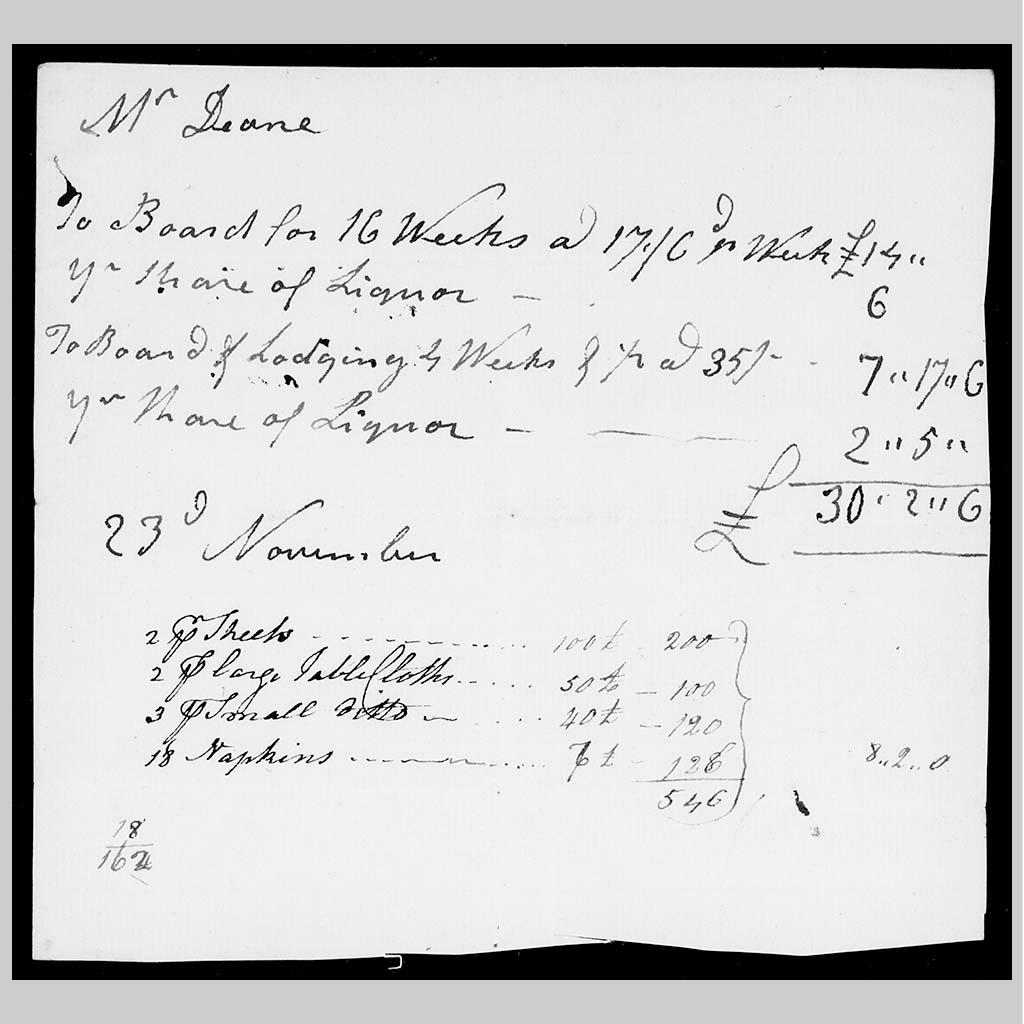 Mr Deane
To Board for 16 Weeks a 17/6d pr Week £14 ,,
Yr Share of Liquor — 6
To Board & Lodging 4 Weeks & ½ a 35/- - 7 ,, 17 ,, 6
Yr Share of Liquor — — 2 ,, 5 ,,
£ 30 ,, 2 ,, 6
23d November
2 pr Sheets - - - - - - - - 100 - 200
2 pr large Table Cloths - - - - 50 - 100
3 pr Small ditto - - - - 40 - 120
18 Napkins - - - - - - - - 7 - 126
546
8 ,, 2 ,, 0
18
162